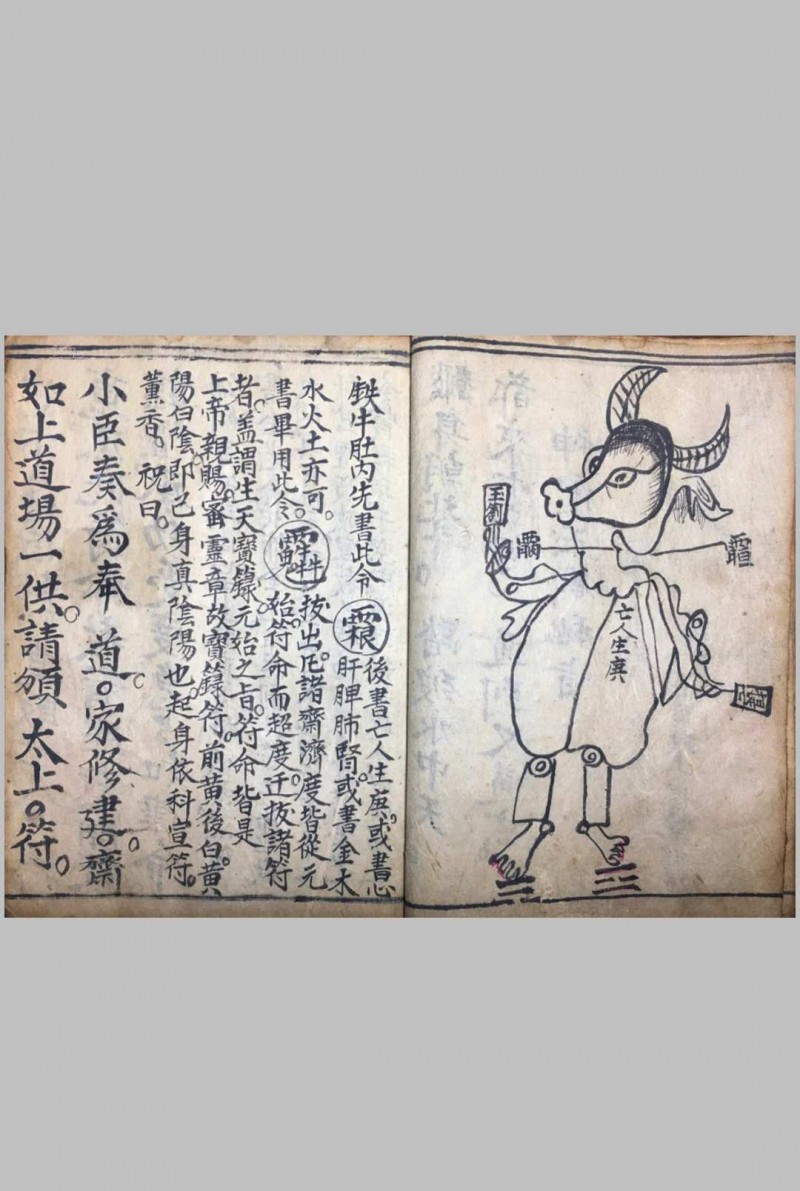 玉劄
亡人生庚
鉄牛肚内先書此令
後書亡人生庚。或書心
肝脾肺腎。或書金木
水火土亦可。
書畢用此令。
拔出厄。諸齋濟度皆從元
始符命而超度。迁拔諸符
者。盖謂生天寶籙。元始之旨。符命皆是
上帝親賜。宻靈章故寶籙符。前黄後白。黄八
陽白陰即己身真陰陽也。起身依科宣符。
薰香。祝曰。
小臣奏爲奉 道。家修建。齋
如上道場一供。請頒 太上。符。